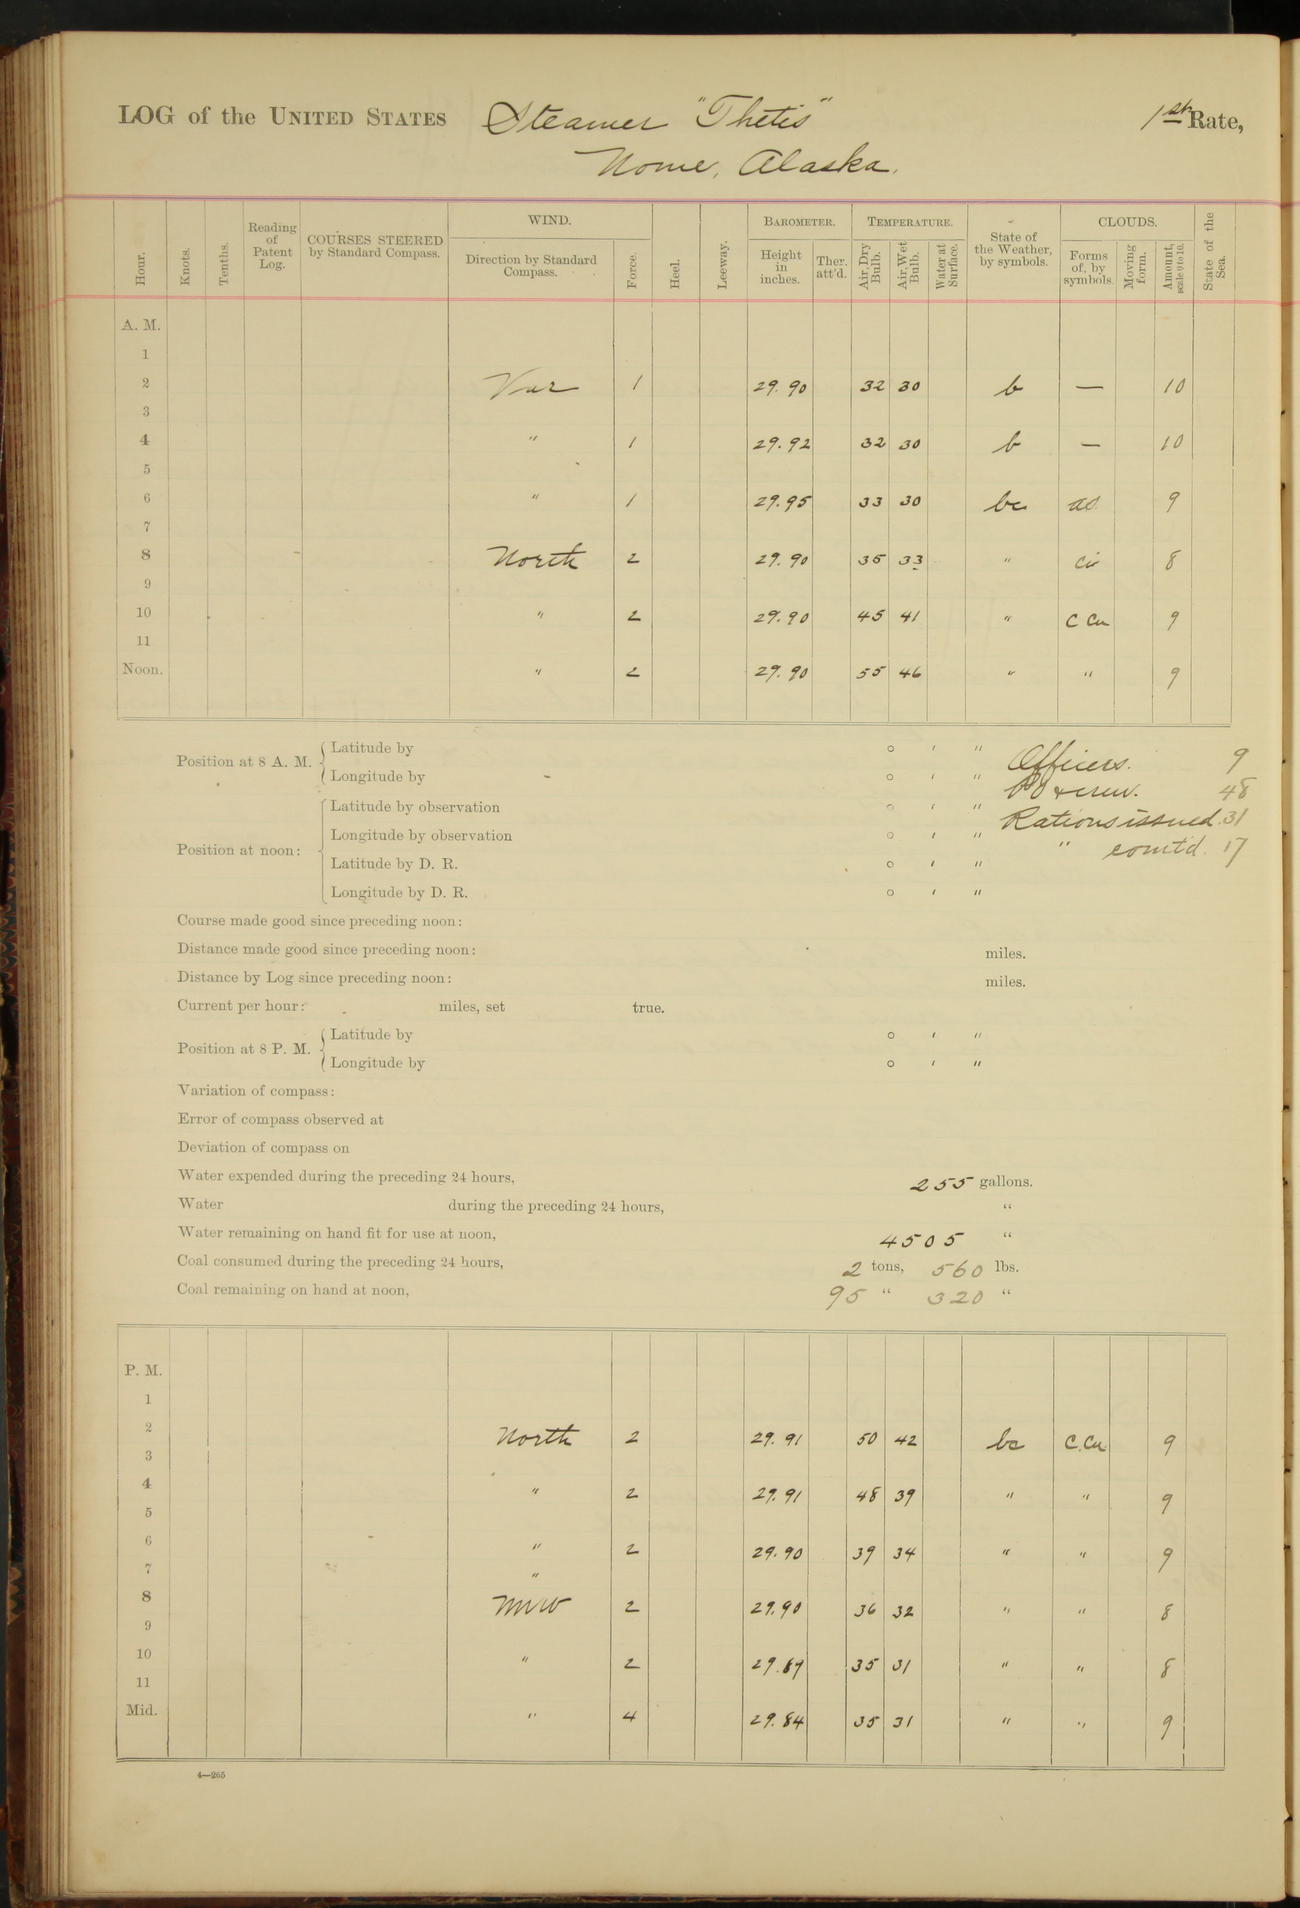 LOG of the UNITED STATES Steamer "Thetis" 1st Rate,
Nome, Alaska.
Hour. Knots. Tenths. Reading of Patent Log. COURSES STEERED by Standard Compass. WIND. Direction by Standard Compass. Force. Heel. Leeway. BAROMETER. Height in inches. Ther. att'd. TEMPERATURE. Air, Dry Bulb. Air, Wet Bulb. Water at Surface. State of the Weather, by symbols. CLOUDS. Forms of, by symbols. Moving form. Amount, scale 0 to 10. State of the Sea.
A. M.
1
2 Var 1 29.90 32 30 b — 10
3
4 " 1 29.92 32 30 b — 10
5
6 " 1 29.95 33 30 bc as. 9
7
8 North 2 29.90 35 33 " Cir 8
9
10 " 2 29.90 45 41 " C Cu 9
11
Noon. " 2 29.90 55 46 " " 9
Position at 8 A. M. Latitude by ° ' " Officers. 9
Longitude by ° ' " PO & crew. 48
Position at noon: Latitude by observation ° ' " Rations issued. 31
Longitude by observation ° ' " " comt'd. 17
Latitude by D. R. ° ' "
Longitude by D. R. ° ' "
Course made good since preceding noon:
Distance made good since preceding noon: miles.
Distance by Log since preceding noon: miles.
Current per hour: miles, set true.
Position at 8 P. M. Latitude by ° ' "
Longitude by ° ' "
Variation of compass:
Error of compass observed at
Deviation of compass on
Water expended during the preceding 24 hours, 255 gallons.
Water during the preceding 24 hours, "
Water remaining on hand fit for use at noon, 4505 "
Coal consumed during the preceding 24 hours, 2 tons, 560 lbs.
Coal remaining on hand at noon, 95 " 320 "
P. M.
1
2 North 2 29.91 50 42 bc C.Cu 9
3
4 " 2 29.91 48 39 " " 9
5
6 " 2 29.90 39 34 " " 9
7 "
8 NNW 2 29.90 36 32 " " 8
9
10 " 2 29.89 35 31 " " 8
11
Mid. " 4 29.84 35 31 " " 9
4—265